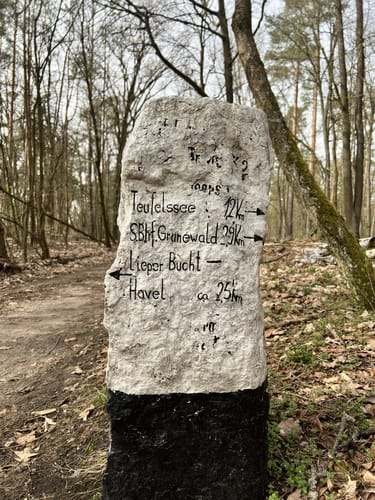 Teufelssee 1,2Km →
S.Bhf. Grunewald 2,9Km →
Lieper Bucht —
← Havel ca 2,5Km